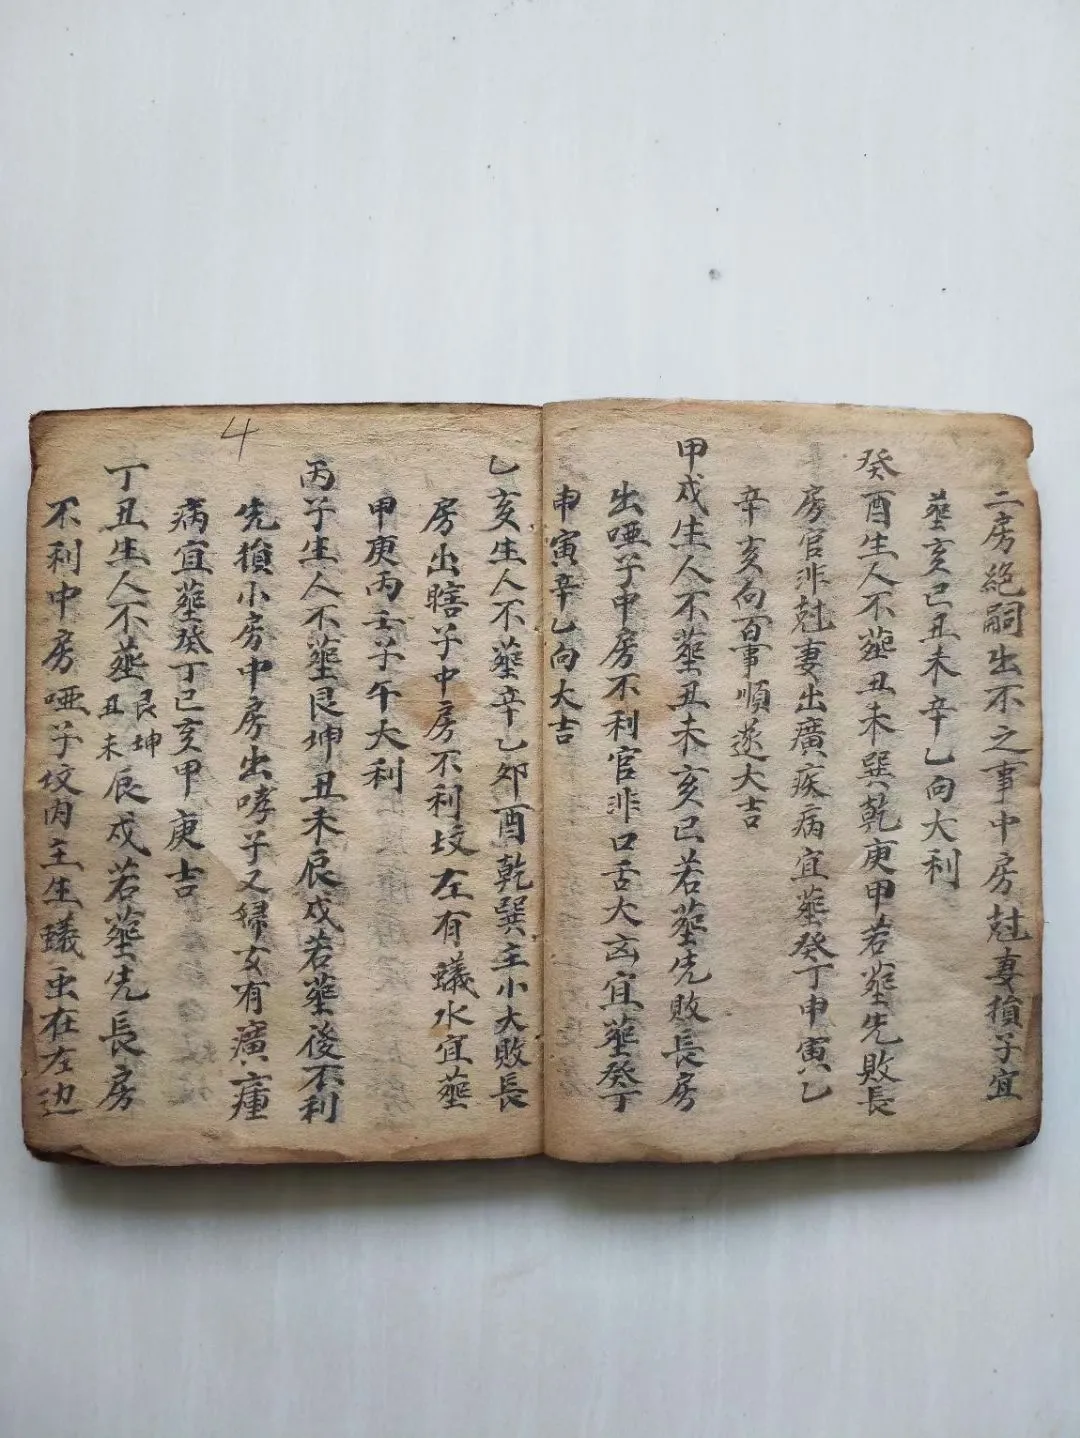 二房絕嗣出不之事中房尅妻損子宜
塟亥巳丑未辛乙向大利
癸酉生人不塟丑未巽乾庚甲若塟先敗長
房官非尅妻出癀疾病宜塟癸丁申寅乙
辛亥向百事順遂大吉
甲戍生人不塟丑未亥巳若塟先敗長房
出啞子中房不利官非口舌大凶宜塟癸丁
申寅辛乙向大吉
乙亥生人不塟辛乙夘酉乾巽主小大敗長
房出瞎子中房不利坟左有蟻水宜塟
甲庚丙壬子午大利
丙子生人不塟艮坤丑未辰戍若塟後不利
先損小房中房出哮子又婦女有癀瘇
病宜塟癸丁巳亥甲庚吉
4
丁丑生人不塟艮坤丑未辰戍若塟先長房
不利中房啞子坟內主生蟻虫在左边